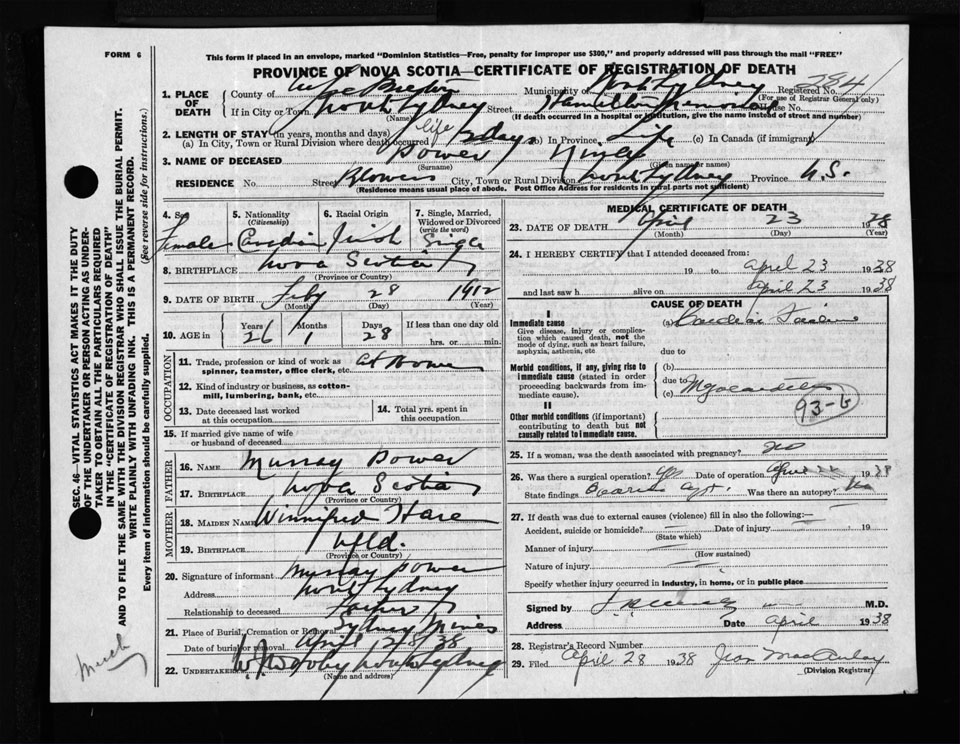 FORM 6
This form if placed in an envelope, marked "Dominion Statistics—Free, penalty for improper use $300," and properly addressed will pass through the mail "FREE"
PROVINCE OF NOVA SCOTIA—CERTIFICATE OF REGISTRATION OF DEATH
1. PLACE OF DEATH County of Cape Breton Municipality of North Sydney Registered No. 2841
(For use of Registrar General only)
If in City or Town North Sydney Street Hamilton Memorial House No.
(Name) (If death occurred in a hospital or institution, give the name instead of street and number)
2. LENGTH OF STAY (in years, months and days)
(a) In City, Town or Rural Division where death occurred life 2 days (b) In Province Life (c) In Canada (if immigrant)
3. NAME OF DECEASED Power
(Surname) (Given name or names)
RESIDENCE No. Street Blowers City, Town or Rural Division North Sydney Province N.S.
(Residence means usual place of abode. Post Office Address for residents in rural parts not sufficient)
4. Sex Female
5. Nationality (Citizenship) Canadian
6. Racial Origin Irish
7. Single, Married, Widowed or Divorced (write the word) Single
8. BIRTHPLACE Nova Scotia
(Province or Country)
9. DATE OF BIRTH Feby 28 1912
(Month) (Day) (Year)
10. AGE in Years 26 Months 1 Days 28 If less than one day old
hrs. or min.
OCCUPATION
11. Trade, profession or kind of work as spinner, teamster, office clerk, etc. At Home
12. Kind of industry or business, as cotton-mill, lumbering, bank, etc.
13. Date deceased last worked at this occupation
14. Total yrs. spent in this occupation
15. If married give name of wife or husband of deceased
FATHER
16. NAME Murray Power
17. BIRTHPLACE Nova Scotia
(Province or Country)
MOTHER
18. MAIDEN NAME Winnifred Hare
19. BIRTHPLACE Nfld.
(Province or Country)
20. Signature of informant Murray Power
Address North Sydney
Relationship to deceased Father
21. Place of Burial, Cremation or Removal Sydney Mines
Date of burial or removal April 28 38
22. UNDERTAKER North Sydney
(Name and address)
MEDICAL CERTIFICATE OF DEATH
23. DATE OF DEATH April 23 1938
(Month) (Day) (Year)
24. I HEREBY CERTIFY that I attended deceased from:
19 to April 23 1938
and last saw h alive on April 23 1938
CAUSE OF DEATH
I
Immediate cause (a) Cardiac Failure
Give disease, injury or complication which caused death, not the mode of dying, such as heart failure, asphyxia, asthenia, etc
due to
Morbid conditions, if any, giving rise to immediate cause (stated in order proceeding backwards from immediate cause). (b)
due to
(c) Myocarditis
93-b
II
Other morbid conditions (if important) contributing to death but not causally related to immediate cause.
25. If a woman, was the death associated with pregnancy? no
26. Was there a surgical operation? yes Date of operation April 22 1938
State findings Ovarian cyst. Was there an autopsy? No
27. If death was due to external causes (violence) fill in also the following:—
Accident, suicide or homicide? Date of injury 19
(State which)
Manner of injury
(How sustained)
Nature of injury
Specify whether injury occurred in industry, in home, or in public place
Signed by M.D.
Address Date April 1938
28. Registrar's Record Number
29. Filed April 28 1938 Jean MacAulay
(Division Registrar)
SEC. 46—VITAL STATISTICS ACT MAKES IT THE DUTY
OF THE UNDERTAKER OR PERSON ACTING AS UNDER-
TAKER TO OBTAIN ALL THE PARTICULARS REQUIRED
IN THE "CERTIFICATE OF REGISTRATION OF DEATH"
AND TO FILE THE SAME WITH THE DIVISION REGISTRAR WHO SHALL ISSUE THE BURIAL PERMIT.
WRITE PLAINLY WITH UNFADING INK. THIS IS A PERMANENT RECORD.
Every item of information should be carefully supplied. (See reverse side for instructions.)